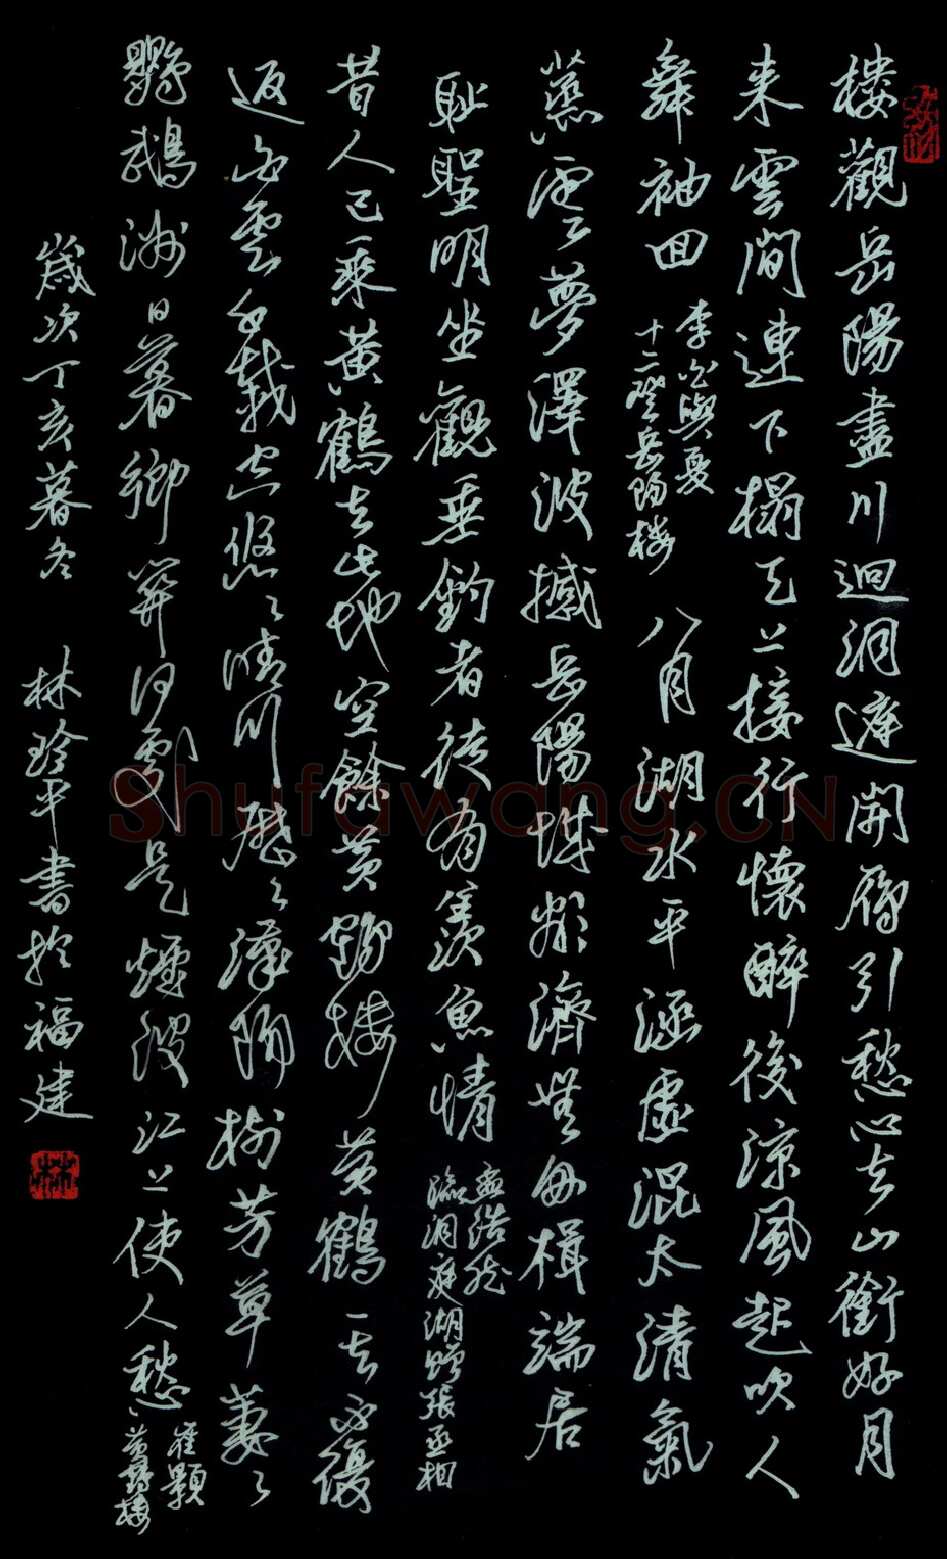 楼觀岳陽盡川迴洞庭開雁引愁心去山銜好月
来雲間連下榻天上接行懷醉後涼風起吹人
舞袖回
李白與夏
十二登岳陽楼
八月湖水平涵虛混太清氣
蒸雲夢澤波撼岳陽城欲濟無舟楫端居
耻聖明坐觀垂釣者徒有羨魚情
孟浩然
臨洞庭湖贈張丞相
昔人已乘黄鶴去此地空餘黄鶴楼黄鶴一去不復
返白雲千載空悠々晴川歷々漢陽樹芳草萋々
鸚鵡洲日暮鄉關何處是煙波江上使人愁
崔顥
黄鶴楼
歲次丁亥暮冬
林平書於福建
林
Shufawang.CN